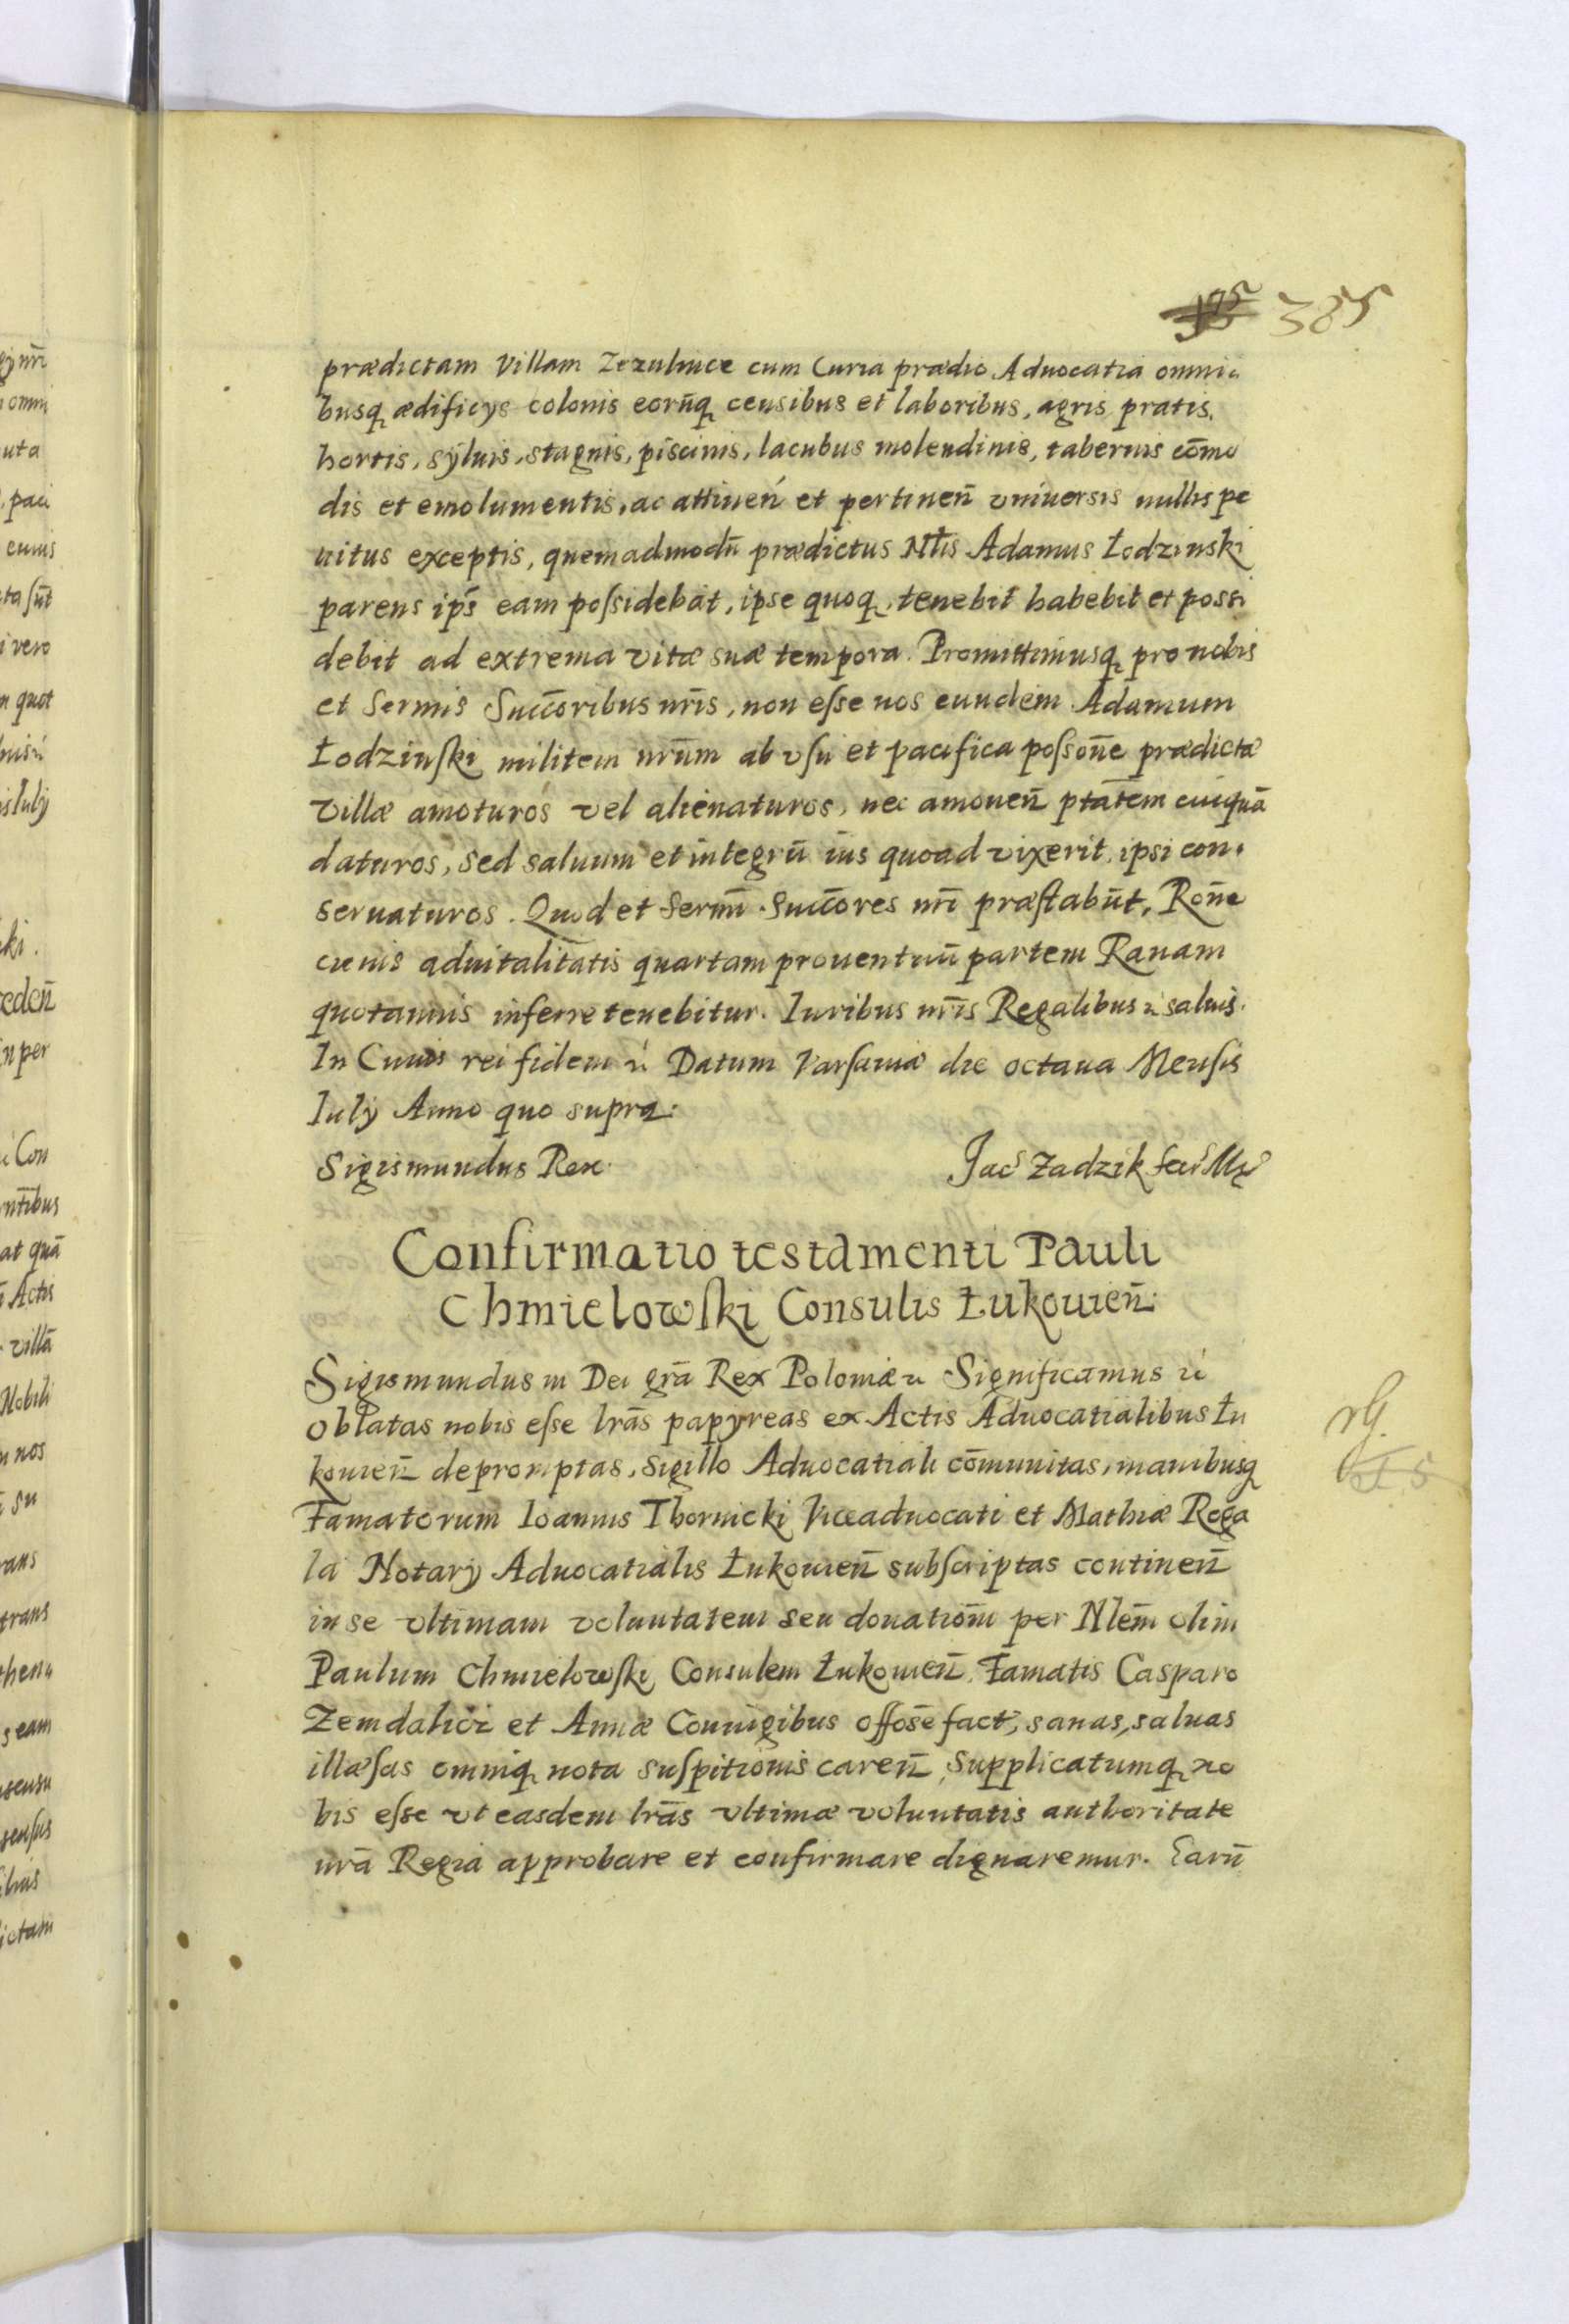 385
prædictam Villam Zezulince cum Curia prædio Aduocatia omni
busq ædificys colonis eorūq censibus et laboribus, agris pratis,
hortis, syluis, stagnis, piscinis, lacubus molendinis, tabernis cōmo
dis et emolumentis, ac attinen̄ et pertinen̄ vniuersis nullis pe
nitus exceptis, quemadmodū prædictus Nlis Adamus Łodzinski
parens ips̄ eam possidebat, ipse quoq, tenebit habebit et possi
debit ad extrema vitæ suæ tempora. Promittimusq pro nobis
et Sermis Succ̄oribus nr̄is, non esse nos eundem Adamum
Łodzinski militem nrūm ab vsu et pacifica possōne prædictæ
Villæ amoturos vel alienaturos, nec amouen̄ ptātem cuiquā
daturos, sed saluum et integrū ius quoad vixerit, ipsi con
seruaturos. Quod et Serm̄i Succ̄ores nr̄i præstabūt, Rōne
cuius aduitalitatis quartam prouentuū partem Rauam
quotannis inferre tenebitur. Iuribus nr̄is Regalibus saluis.
In Cuius rei fidem Datum Varsauiæ die octaua Mensis
Iuly Anno quo supra.
Sigismundus Rex Jac Zadzik
Confirmatio testamenti Pauli
Chmielowski Consulis Łukouien̄
Sigismundus III Dei grā Rex Poloniæ Significamus
Oblatas nobis esse lrās papyreas ex Actis Aduocatialibus Łu
kouien̄ depromptas, Sigillo Aduocatiali cōmunitas, manibusq
Famatorum Ioannis Thornicki Viceaduocati et Mathiæ Rega
la Notary Aduocatialis Łukouien̄ subscriptas continen̄
in se vltimam voluntatem seu donatiōm per Nlem̄ olim
Paulum Chmielowski Consulem Łukouien̄ Famatis Casparo
Zemdalici et Annæ Coniugibus fact, sanas, saluas
illæsas omniq nota suspitionis caren̄, Supplicatumq no
bis esse vt easdem lrās vltimæ voluntatis authoritate
nrā Regia approbare et confirmare dignaremur. Earū